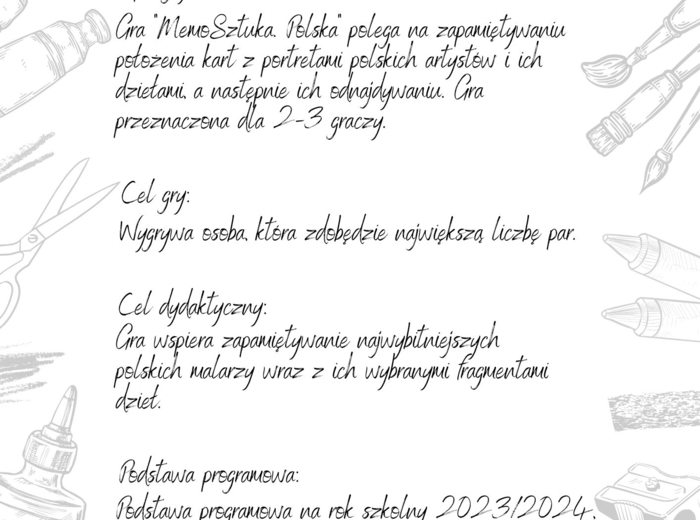 Gra "MemoSztuka. Polska" polega na zapamiętywaniu
położenia kart z portretami polskich artystów i ich
dziełami, a następnie ich odnajdywaniu. Gra
przeznaczona dla 2-3 graczy.
Cel gry:
Wygrywa osoba, która zdobędzie największą liczbę par.
Cel dydaktyczny:
Gra wspiera zapamiętywanie najwybitniejszych
polskich malarzy wraz z ich wybranymi fragmentami
dzieł.
Podstawa programowa:
Podstawa programowa na rok szkolny 2023/2024.